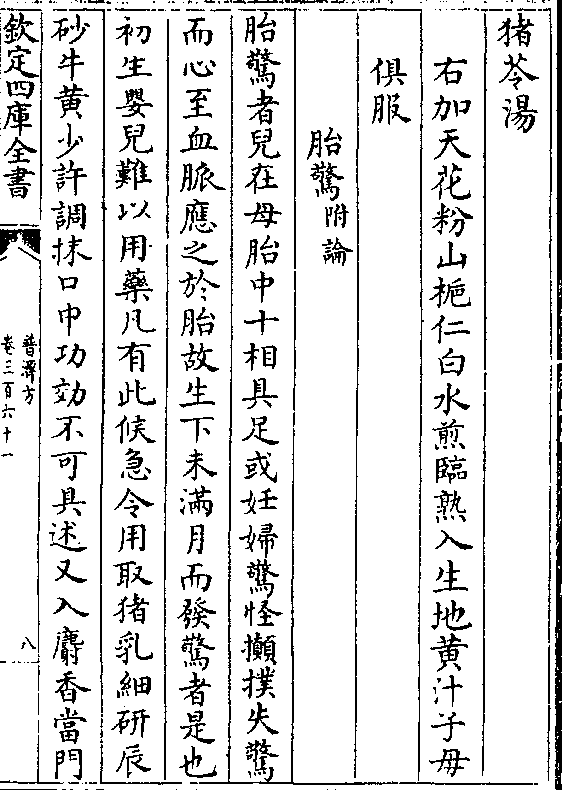 猪苓湯
右加天花粉山梔仁白水煎臨熟入生地黄汁子母
俱服
胎驚附論
胎驚者兒在母胎中十相具足或妊婦驚怪攧撲失驚
而心至血脈應之於胎故生下未滿月而發驚者是也
初生嬰兒難以用藥凡有此候急令用取猪乳細研辰
砂牛黄少許調抹口中功効不可具述又入麝香當門
欽定四庫全書
普濟方
卷三百六十一
八